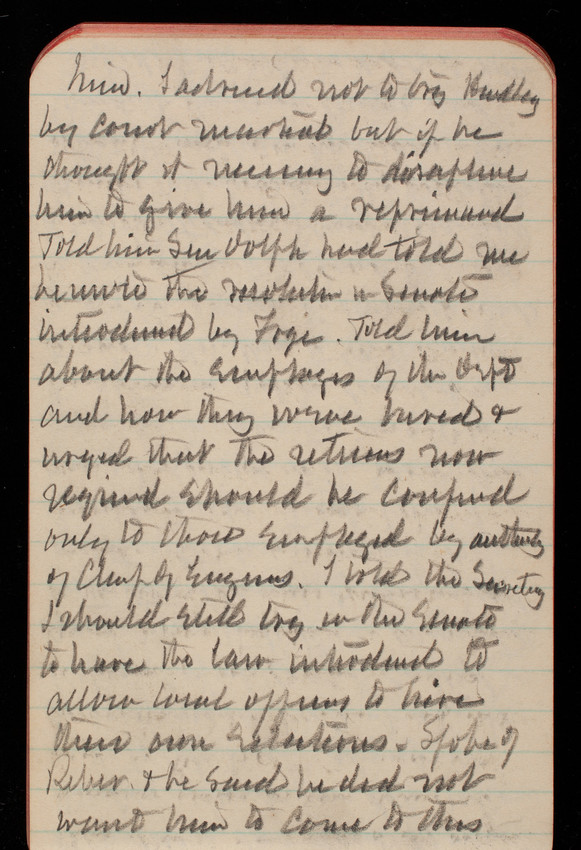 him. I advised not to try Handley
by court martial but if he
thought it necessary to discipline
him to give him a reprimand
Told him Sen Dolph had told me
he wrote the resolution in Senate
introduced by Frye. Told him
about the employes of the Dept
and how they were hired &
urged that the returns now
required should be confined
only to those employed by authority
of Chief of Engrs. I told the Secretary
I should still try in the Senate
to have the law introduced to
allow local officers to hire
their own selections. Spoke of
Reber. & he said he did not
want him to come to this